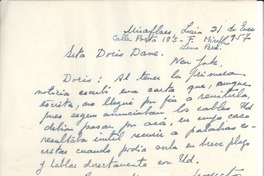 Miraflores, Lima 21 de Enero
Calle Porta 183 - F. Miraflores 1957
Lima Perú.
Srta Doris Dana.
New York.
Doris: Al tener la primera
noticia escribí una carta que, aunque
escrita, no llegué por fin a remitirla,
pues según anunciaban los cables Ud
debía pasar por acá, en cuyo caso
resultaba inútil recurrir a palabras es-
critas cuando podía sería en breve plazo
y hablar directamente con Ud.